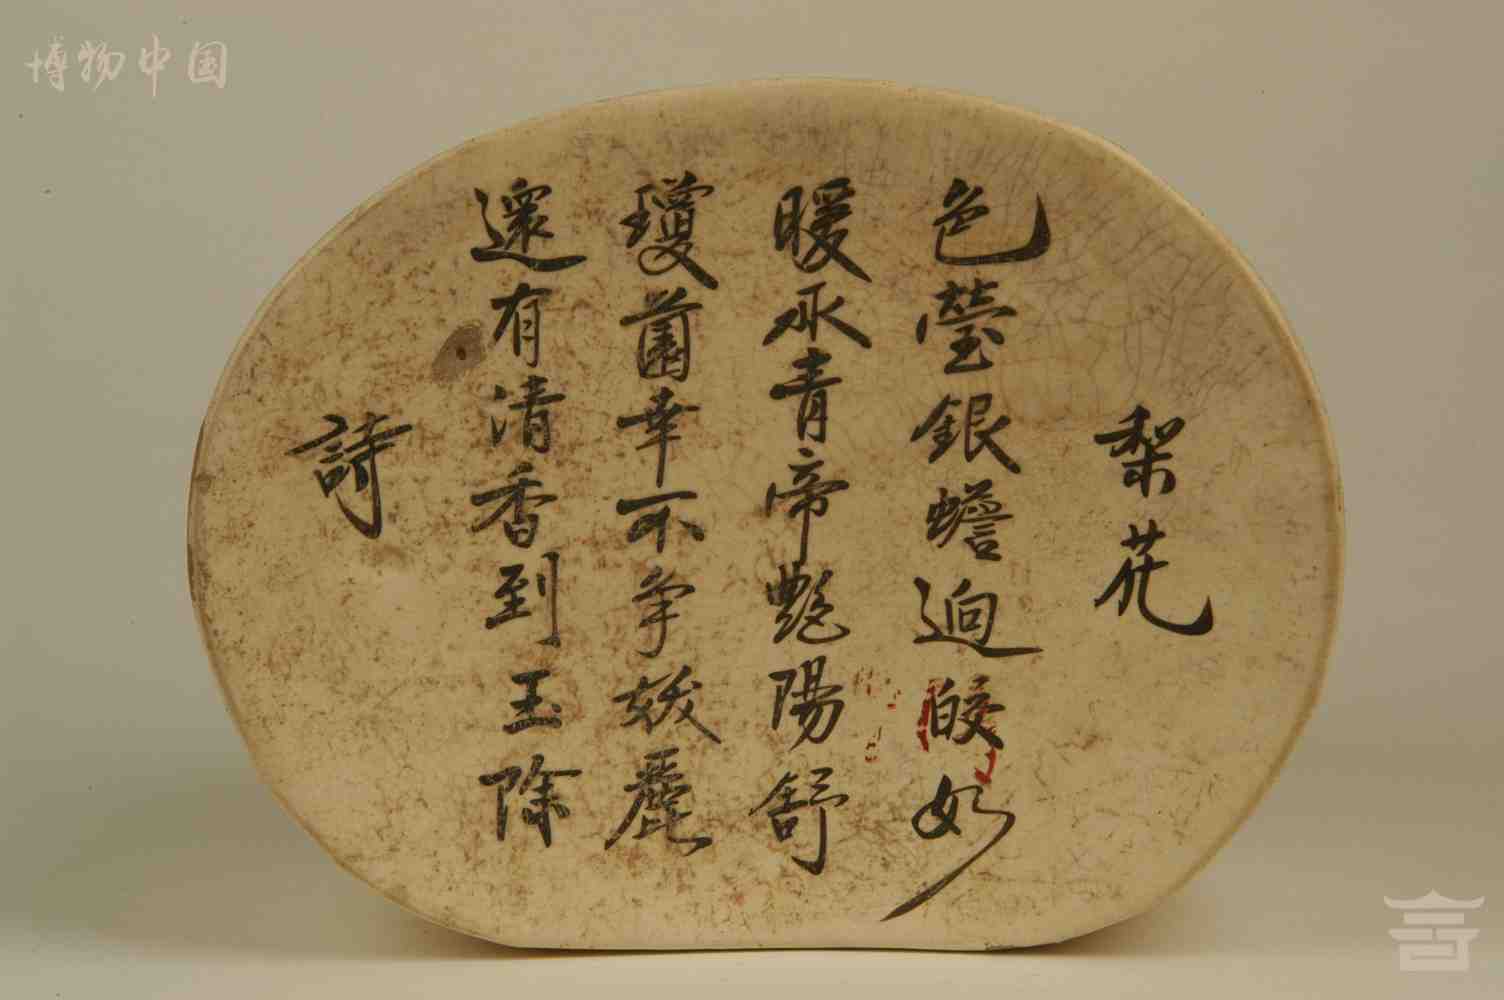 博物中国
梨花
色瑩銀蟾迥皎如
暖承青帝艷陽舒
瓊菌幸不爭姣麗
還有清香到玉除
詩